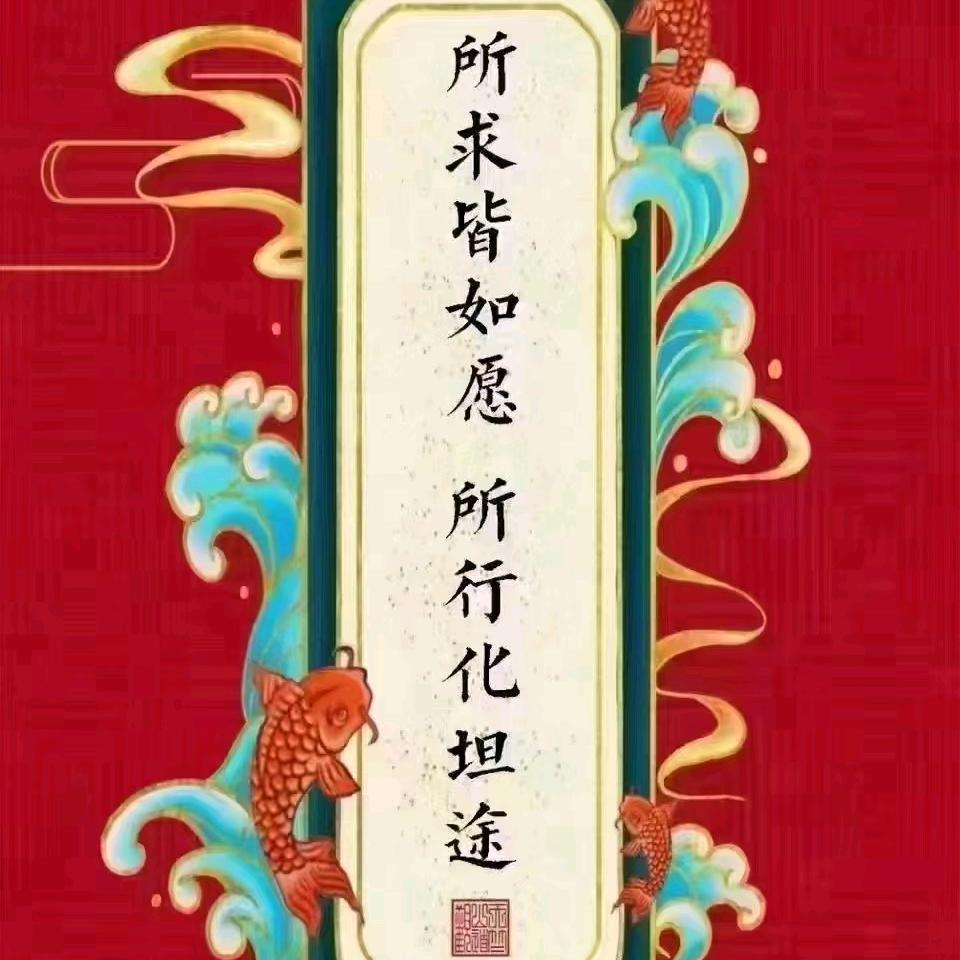 所求皆如愿 所行化坦途